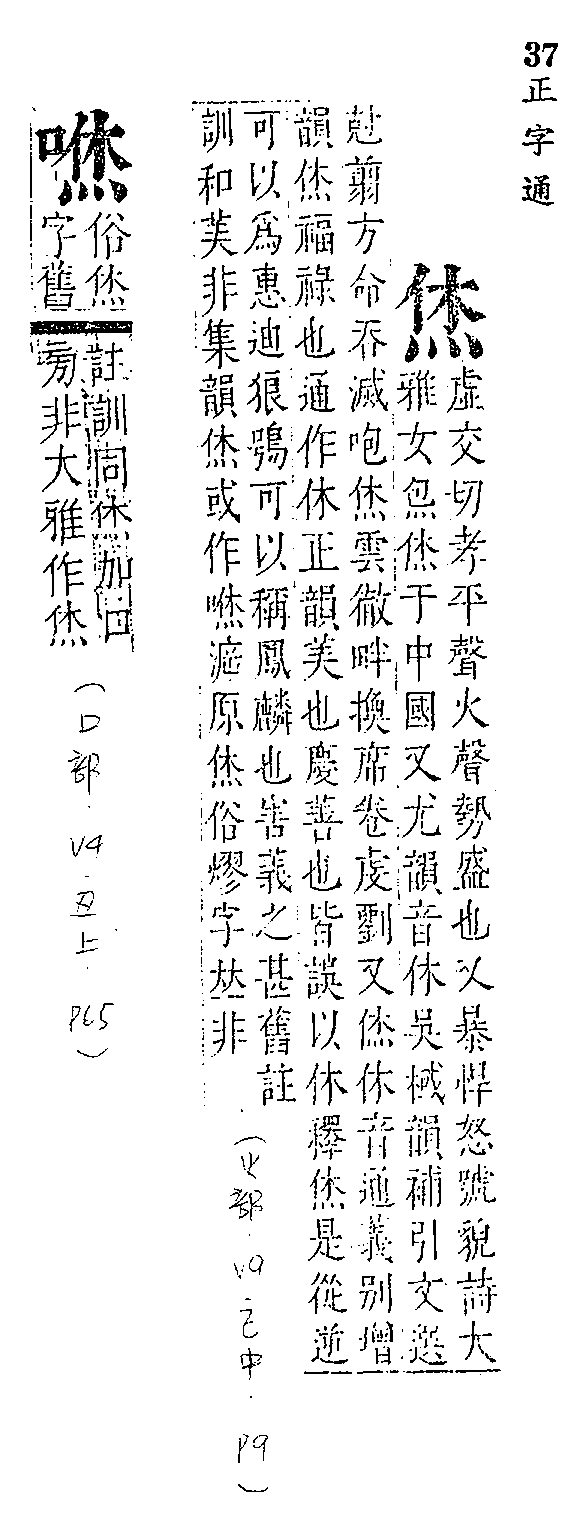 37正字通
烋
虛交切孝平聲火聲勢盛也又暴悍怒號貌詩大
雅女炰烋于中國又尤韻音休吳棫韻補引文選
尅翦方命吞滅咆烋雲徹畔換席卷虔劉又烋休音通義別增
韻烋福祿也通作休正韻美也慶善也皆誤以休釋烋是從逆
可以爲惠迪狼鴞可以稱鳳麟也害義之甚舊註
訓和美非集韻烋或作咻㴲原烋俗熮字𡘋非
(火部.V9.己中.P9)
㷌
俗烋
字舊
註訓同休加口
㫄非大雅作烋
(口部.V4.丑上.P65)